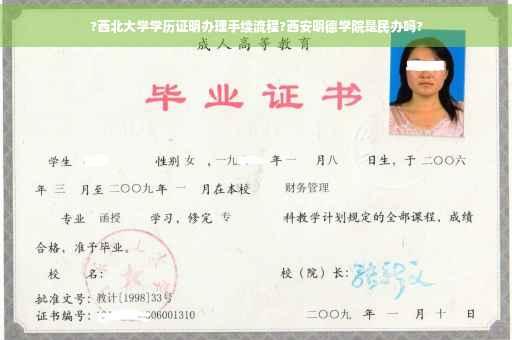 ?西北大学学历证明办理手续流程?西安明德学院是民办吗?
成人高等教育
毕业证书
学生 性别 女 ，一九 年 一 月八 日生，于 二〇〇六
年 三 月至 二〇〇九 年 一 月在本校 财务管理
专业 函授 学习，修完 专 科教学计划规定的全部课程，成绩
合格，准予毕业。
校 名： 校（院）长：
批准文号：教计[1998]33号
证书编号： 06001310 二〇〇九 年 一 月 十 日